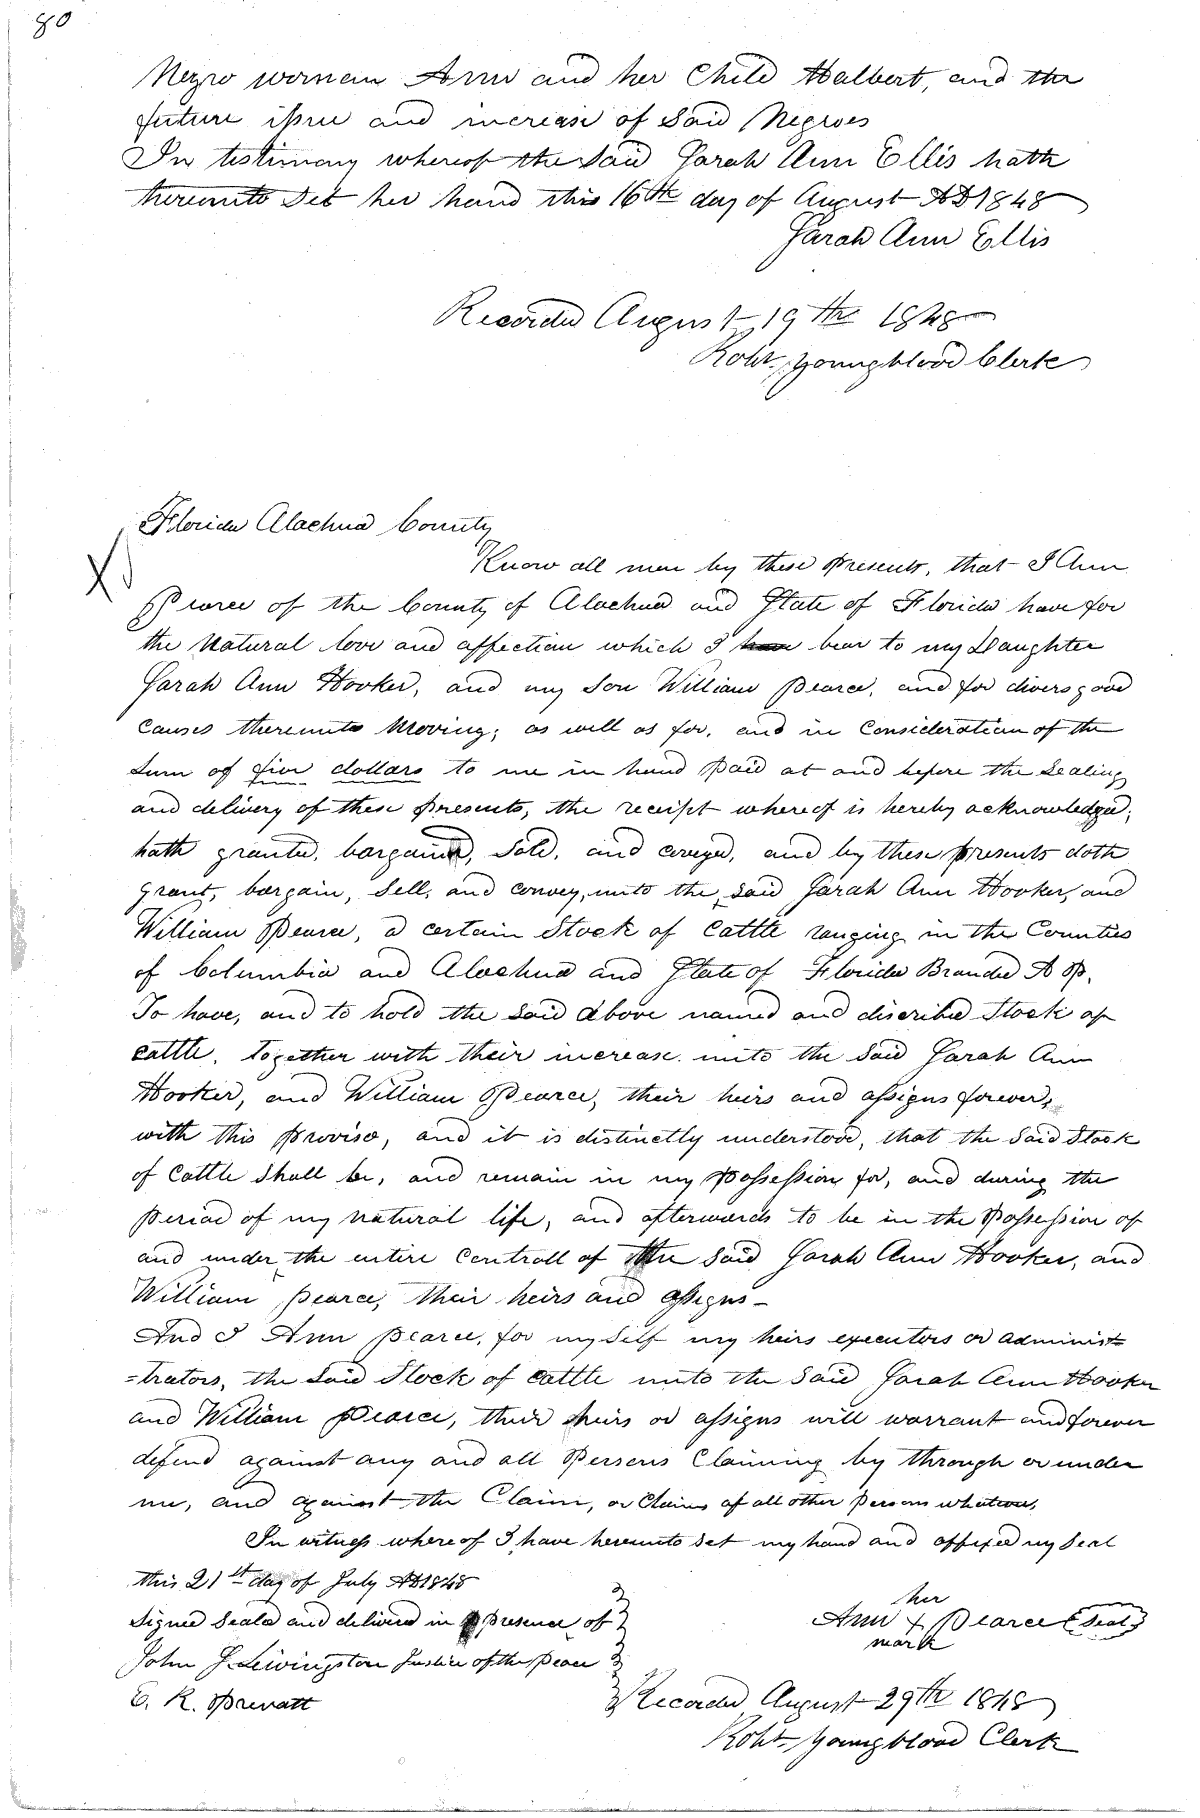 80
Negro woman Ann and her Child Halbert, and the
future issue and increase of Said Negroes
In testimony whereof the Said Sarah Ann Ellis hath
hereunto Set her hand this 16th day of August AD 1848
Sarah Ann Ellis
Recorded August 19th 1848
Robt. Youngblood Clerk
Florida Alachua County
X
Know all men by these presents, that I Ann
Pearce of the County of Alachua and State of Florida have for
the Natural love and affection which I have bear to my Daughter
Sarah Ann Hooker, and my Son William Pearce, and for divers good
Causes thereunto Moving; as well as for, and in Consideration of the
Sum of five dollars to me in hand paid at and before the Sealing
and delivery of these presents, the receipt whereof is hereby acknowledged,
hath granted, bargained, Sold, and conveyed, and by these presents doth
grant, bargain, Sell, and convey, unto the Said Sarah Ann Hooker, and
William Pearce, a certain Stock of Cattle ranging in the Counties
of Columbia and Alachua and State of Florida Branded A P.
To have, and to hold the Said above named and discribed Stock of
cattle, together with their increase unto the Said Sarah Ann
Hooker, and William Pearce, their heirs and assigns forever,
with this proviso, and it is distinctly understood, that the Said Stock
of Cattle Shall be, and remain in my possession for, and during the
period of my natural life, and afterwards to be in the possession of
and under the entire Controll of the Said Sarah Ann Hooker, and
William Pearce, their heirs and assigns –
And I Ann Pearce, for myself my heirs executors or adminis=
=trators, the Said Stock of Cattle unto the Said Sarah Ann Hooker
and William Pearce, their heirs or assigns will warrant and forever
defend against any and all Persons Claiming by through or under
me, and against the Claim, or Claims of all other persons whatever,
In witness whereof I have hereunto Set my hand and affixed my Seal
this 21st day of July AD 1848
Signed Sealed and delivered in presence of
her
Ann X Pearce (Seal)
mark
John J. Livingston Justice of the Peace
E. R. Prevatt
Recorded August 29th 1848
Robt. Youngblood Clerk